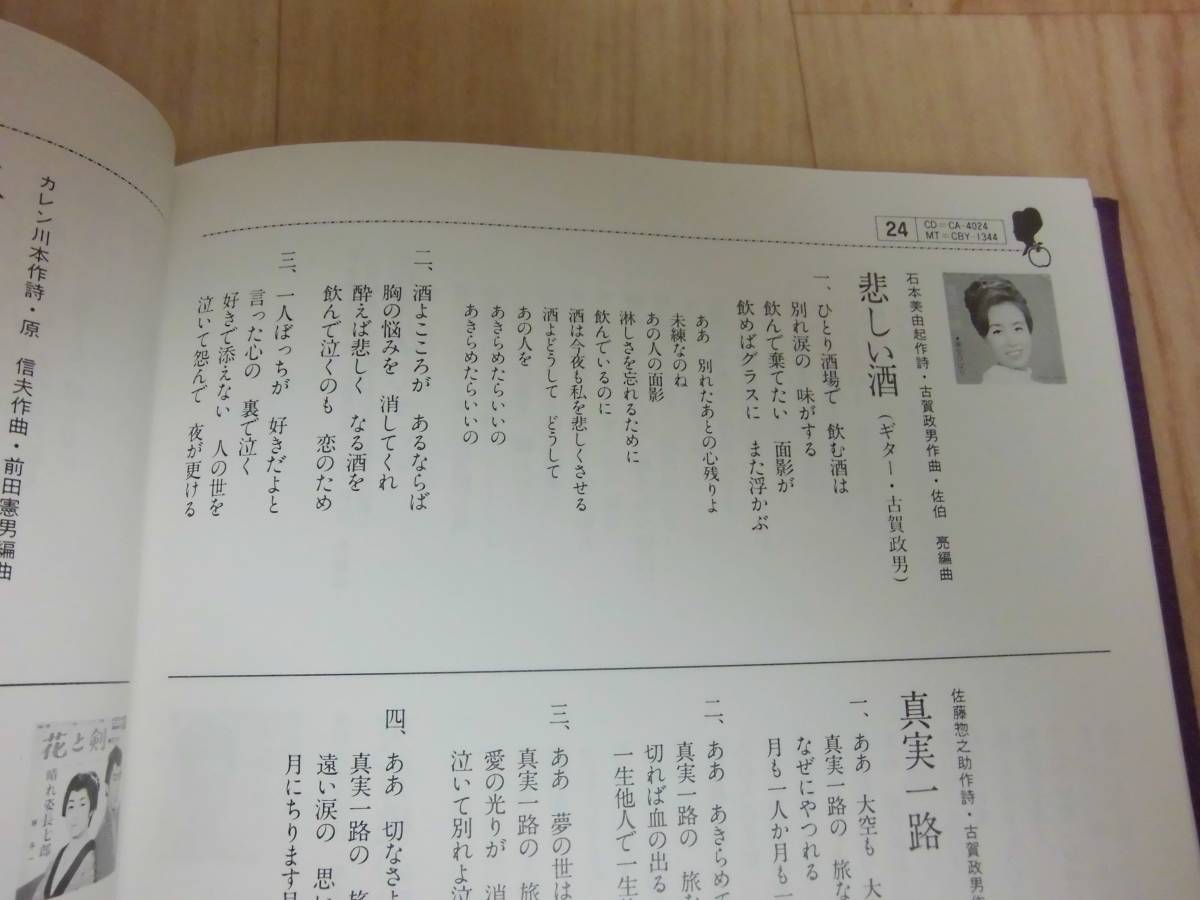 24
CD=CA-4024
MT=CBY-1344
石本美由起作詩・古賀政男作曲・佐伯 亮編曲
悲しい酒 (ギター・古賀政男)
一、ひとり酒場で 飲む酒は
別れ涙の 味がする
飲んで棄てたい 面影が
飲めばグラスに また浮かぶ
ああ 別れたあとの心残りよ
未練なのね
あの人の面影
淋しさを忘れるために
飲んでいるのに
酒は今夜も私を悲しくさせる
酒よどうして どうして
あの人を
あきらめたらいいの
あきらめたらいいの
二、酒よこころが あるならば
胸の悩みを 消してくれ
酔えば悲しく なる酒を
飲んで泣くのも 恋のため
三、一人ぼっちが 好きだよと
言った心の 裏で泣く
好きで添えない 人の世を
泣いて怨んで 夜が更ける
佐藤惣之助作詩・古賀政男作
真実一路
一、ああ 大空も 大
真実一路の 旅な
なぜにやつれる
月も一人か月も一
二、ああ あきらめて
真実一路の 旅な
切れば血の出る
一生他人で一生
三、ああ 夢の世は
真実一路の 旅
愛の光りが 消
泣いて別れよ泣
四、ああ 切なさよ
真実一路の 旅
遠い涙の 思い
月にちります月
カレン川本作詩・原 信夫作曲・前田憲男編曲
花と剣
晴れ姿長七郎